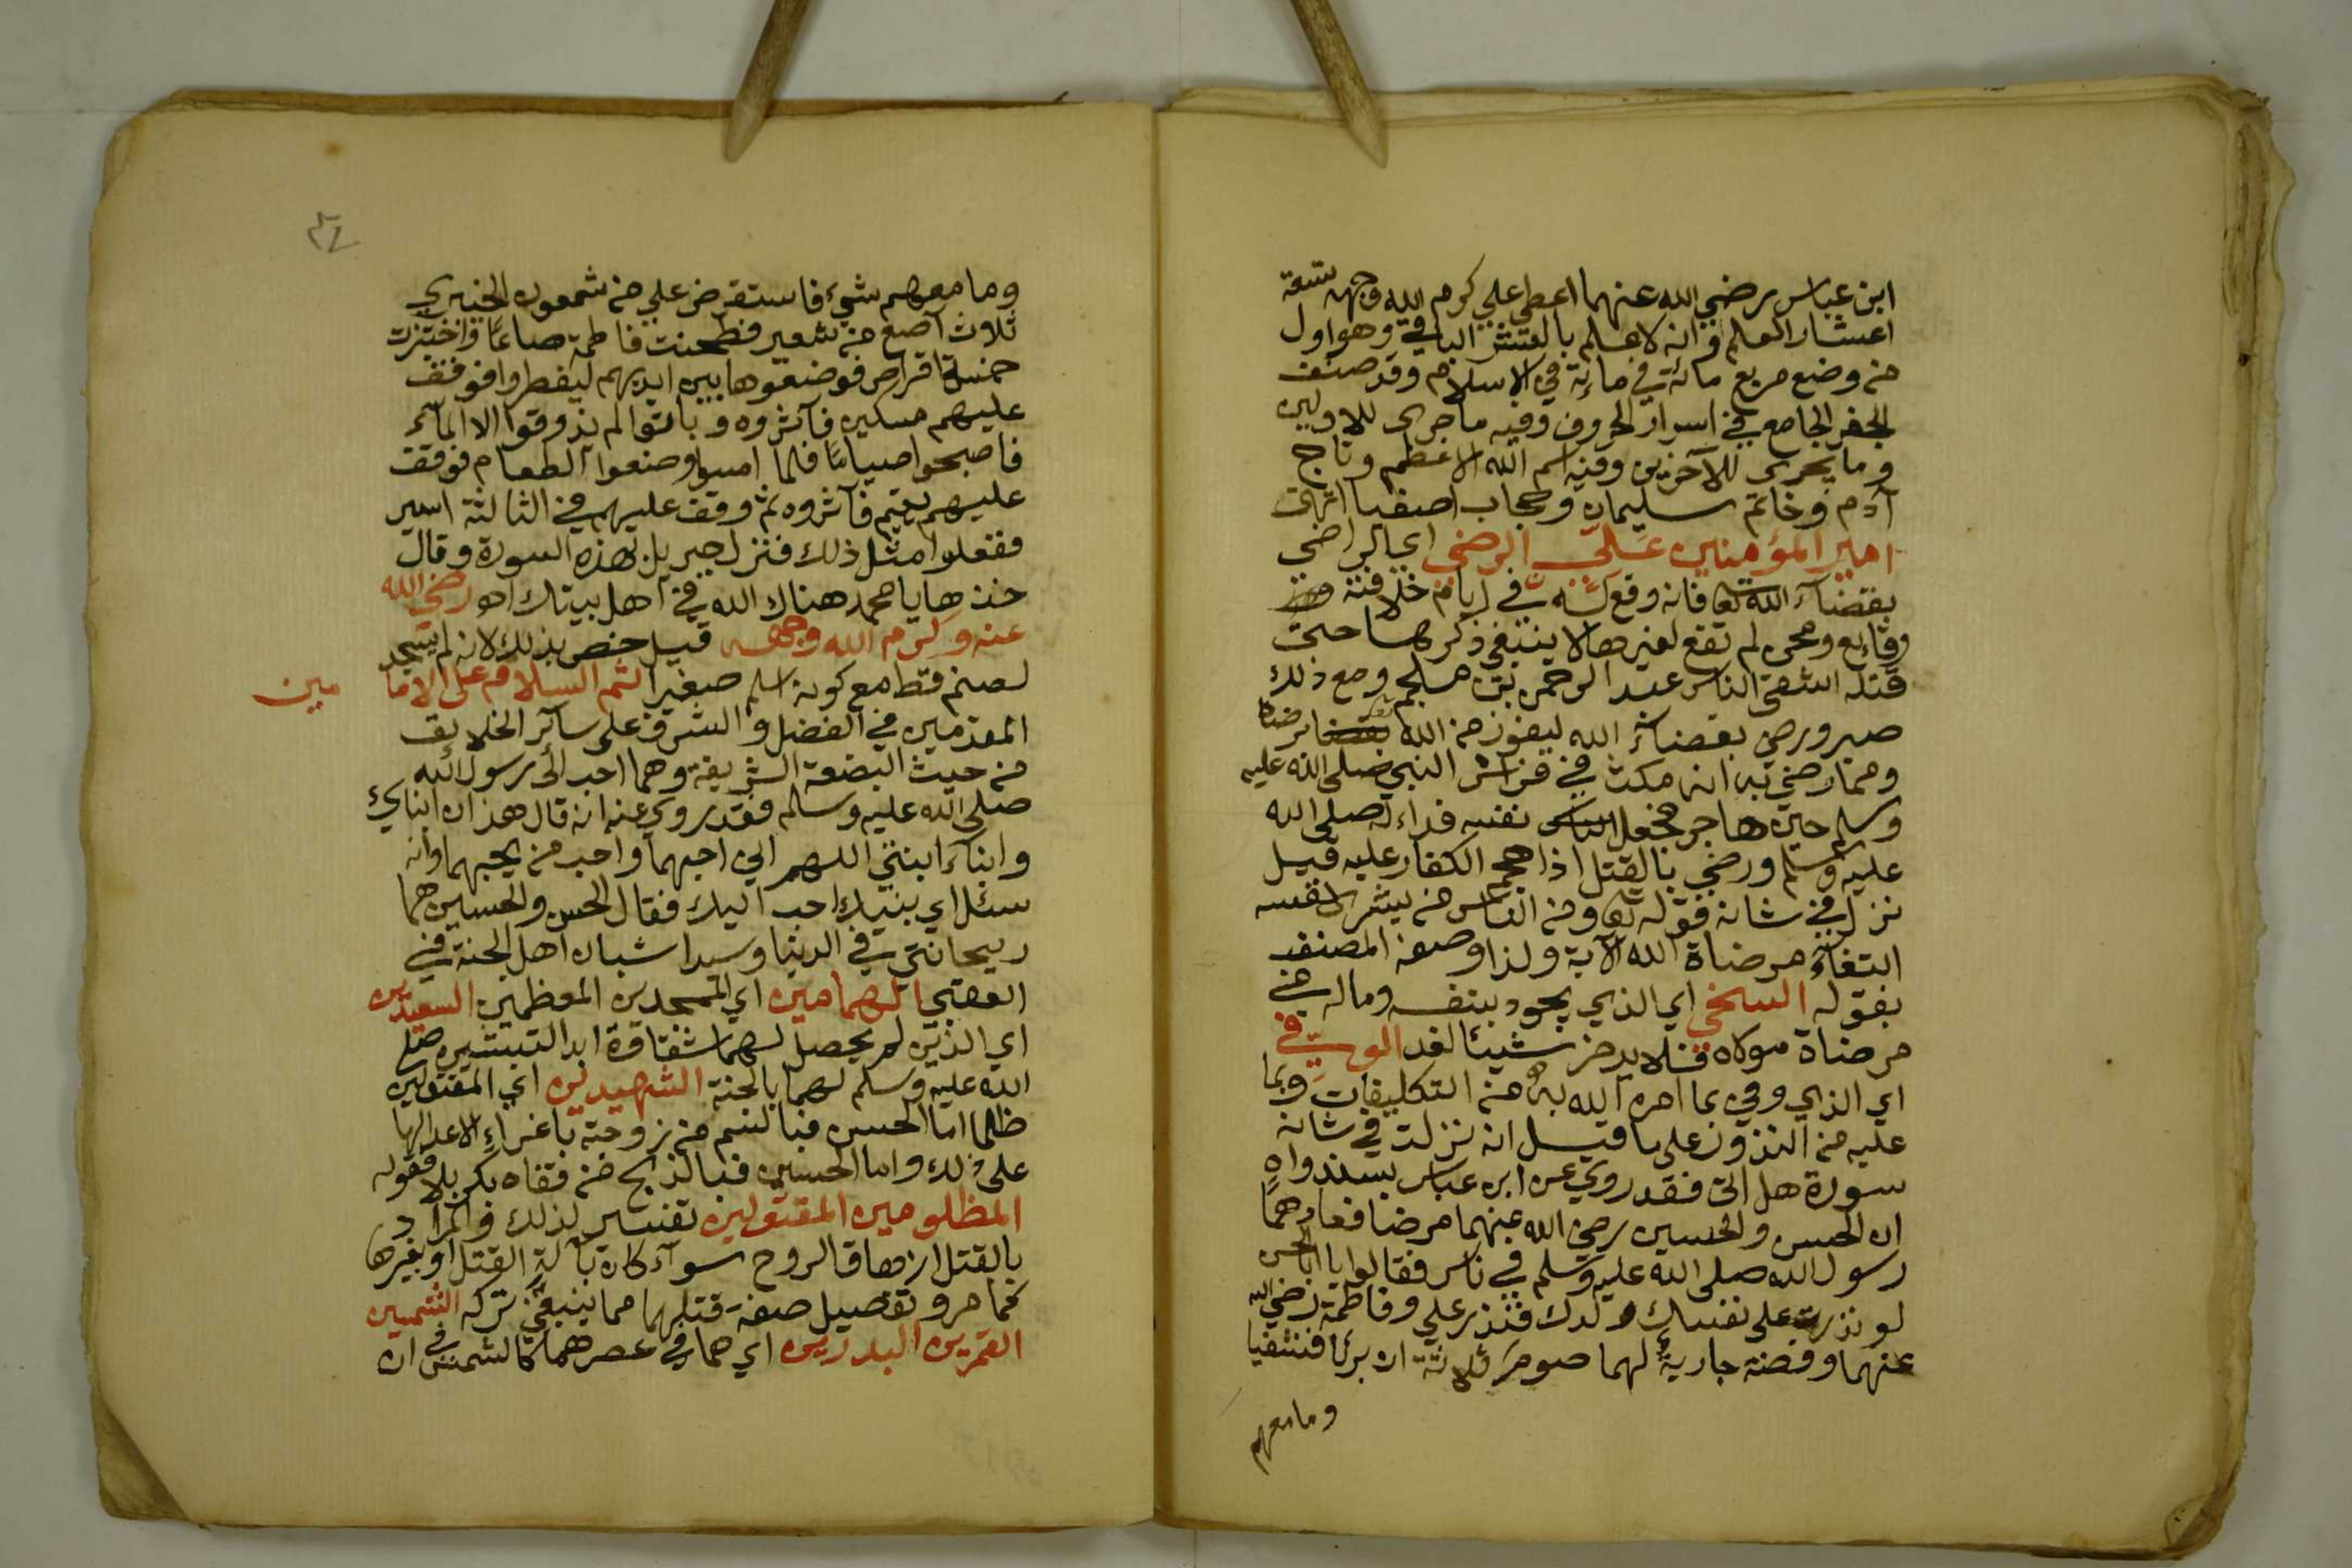 ابن عباس رضي الله عنهما اعطي علي كرم الله وجهه تسعة
اعشار العلم وانه لاعلم بالعشر الباقي وهو اول
من وضع مربع مائة في مائة في الاسلام وقد صنف
الجفر الجامع في اسرار الحروف وفيه ما جرى للاولين
وما يجرى للآخرين وفيه اسم الله الاعظم وتاج
آدم وخاتم سليمان وحجاب اصف انتهت
امير المؤمنين علي الرضي اي الراضي
بقضاء الله تعا فانه وقع له في ايام خلافته
وقايع ومحن لم تقع لغيره لا ينبغي ذكرها حتى
قتله اشقى الناس عبد الرحمن بن ملجم ومع ذلك
صبر ورضي بقضاء الله ليفوز من الله برضاه
ومما رضي به انه مكث في فراش النبي صلى الله عليه
وسلم حين هاجر فجعل نفسه فداء له صلى الله
عليه وسلم ورضي بالقتل اذا هجم الكفار عليه قيل
نزل في شانه قوله تعا ومن الناس من يشرى نفسه
ابتغاء مرضاة الله الآية ولذا وصفه المصنف
بقوله السخي اي الذي يجود بنفسه وماله في
مرضاة مولاه فلا يدخر شيئا لغد الوفي
اي الذي وفي بما امره الله به من التكليفات وبما
عليه من النذور على ما قيل انه نزلت في شانه
سورة هل اتى فقد روي عن ابن عباس بسند واه
ان الحسن والحسين رضي الله عنهما مرضا فعادهما
رسول الله صلى الله عليه وسلم في ناس فقالوا يا ابا الحسن
لو نذرت على نفسك ولدك فنذر علي وفاطمة رضي الله
عنهما وفضة جارية لهما صوم ثلاثة ان برئا فشفيا
وما معهم
٣٤
وما معهم شيء فاستقرض علي من شمعون الخيبري
ثلاث اصع من شعير فطحنت فاطمة صاعا واختبزت
خمسة اقراص فوضعوها بين ايديهم ليفطروا فوقف
عليهم مسكين فآثروه وباتوا لم يذوقوا الا الماء
فاصبحوا صياما فلما امسوا وصنعوا الطعام فوقف
عليهم يتيم فآثروه ثم وقف عليهم في الثالثة اسير
ففعلوا مثل ذلك فنزل جبريل بهذه السورة وقال
خذها يا محمد هناك الله في اهل بيتك اهـ رضي الله
عنه وكرم الله وجهه قيل خص بذلك لانه لم يسجد
لصنم قط مع كونه اسلم صغيرا ثم السلام على الاما
مين
المقدمين في الفضل والشرف على سائر الخلايق
من حيث البضعة الشريفة وهما احب الى رسول الله
صلى الله عليه وسلم فقد روي عنه انه قال هذان ابناي
وابناء ابنتي اللهم اني احبهما واحب من يحبهما وانه
سئل اي بنيك احب اليك فقال الحسن والحسين هما
ريحانتي في الدنيا وسيدا شبان اهل الجنة في
العقبى الهمامين اي الممجدين المعظمين السعيدين
اي الذين لم يحصل لهما شقاوة ابدا لتبشيره صلى
الله عليه وسلم لهما بالجنة الشهيدين اي المقتولين
ظلما اما الحسن فبالسم من زوجته باغراء الاعدا لها
على ذلك واما الحسين فبالذبح من قفاه بكربلا فقوله
المظلومين المقتولين تفسير لذلك والمراد
بالقتل ازهاق الروح سواء كان بآلة القتل او بغيرها
كما مر وتفصيل صفة قتلهما مما ينبغي تركه الشمسين
القمرين البدرين اي هما في عصرهما كالشمس في ان